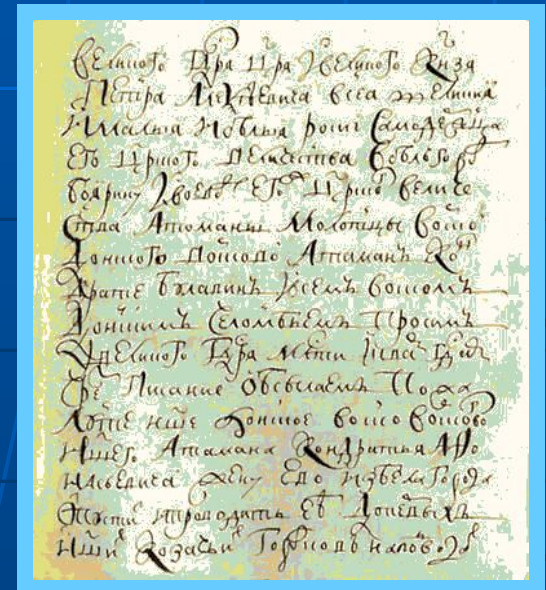 великого Гдра Цря Ивеликого Кнзя
Петра Алеѯѣевича всеа великия
Ималыя Ибѣлыя росиі Самодержца
Его Црского Величества
боярину Івоево Его Црско величе
ства Атаманы Молотцы воиско
Донского Воиско Атаманъ Ко
дратеи Булавинъ Ивсемъ воискомъ
Донскимъ Челомбьемъ Просимъ
великого Гдра Млсти Ивасъ
Писание Обсылаемъ Пожа
луите нше Донское воиско воисково
Ншего Атамана Кондратья Афо
насьевича жену Ево Избела Города
проводить Ее Донецкихъ
Нши Козачьи Городковъ